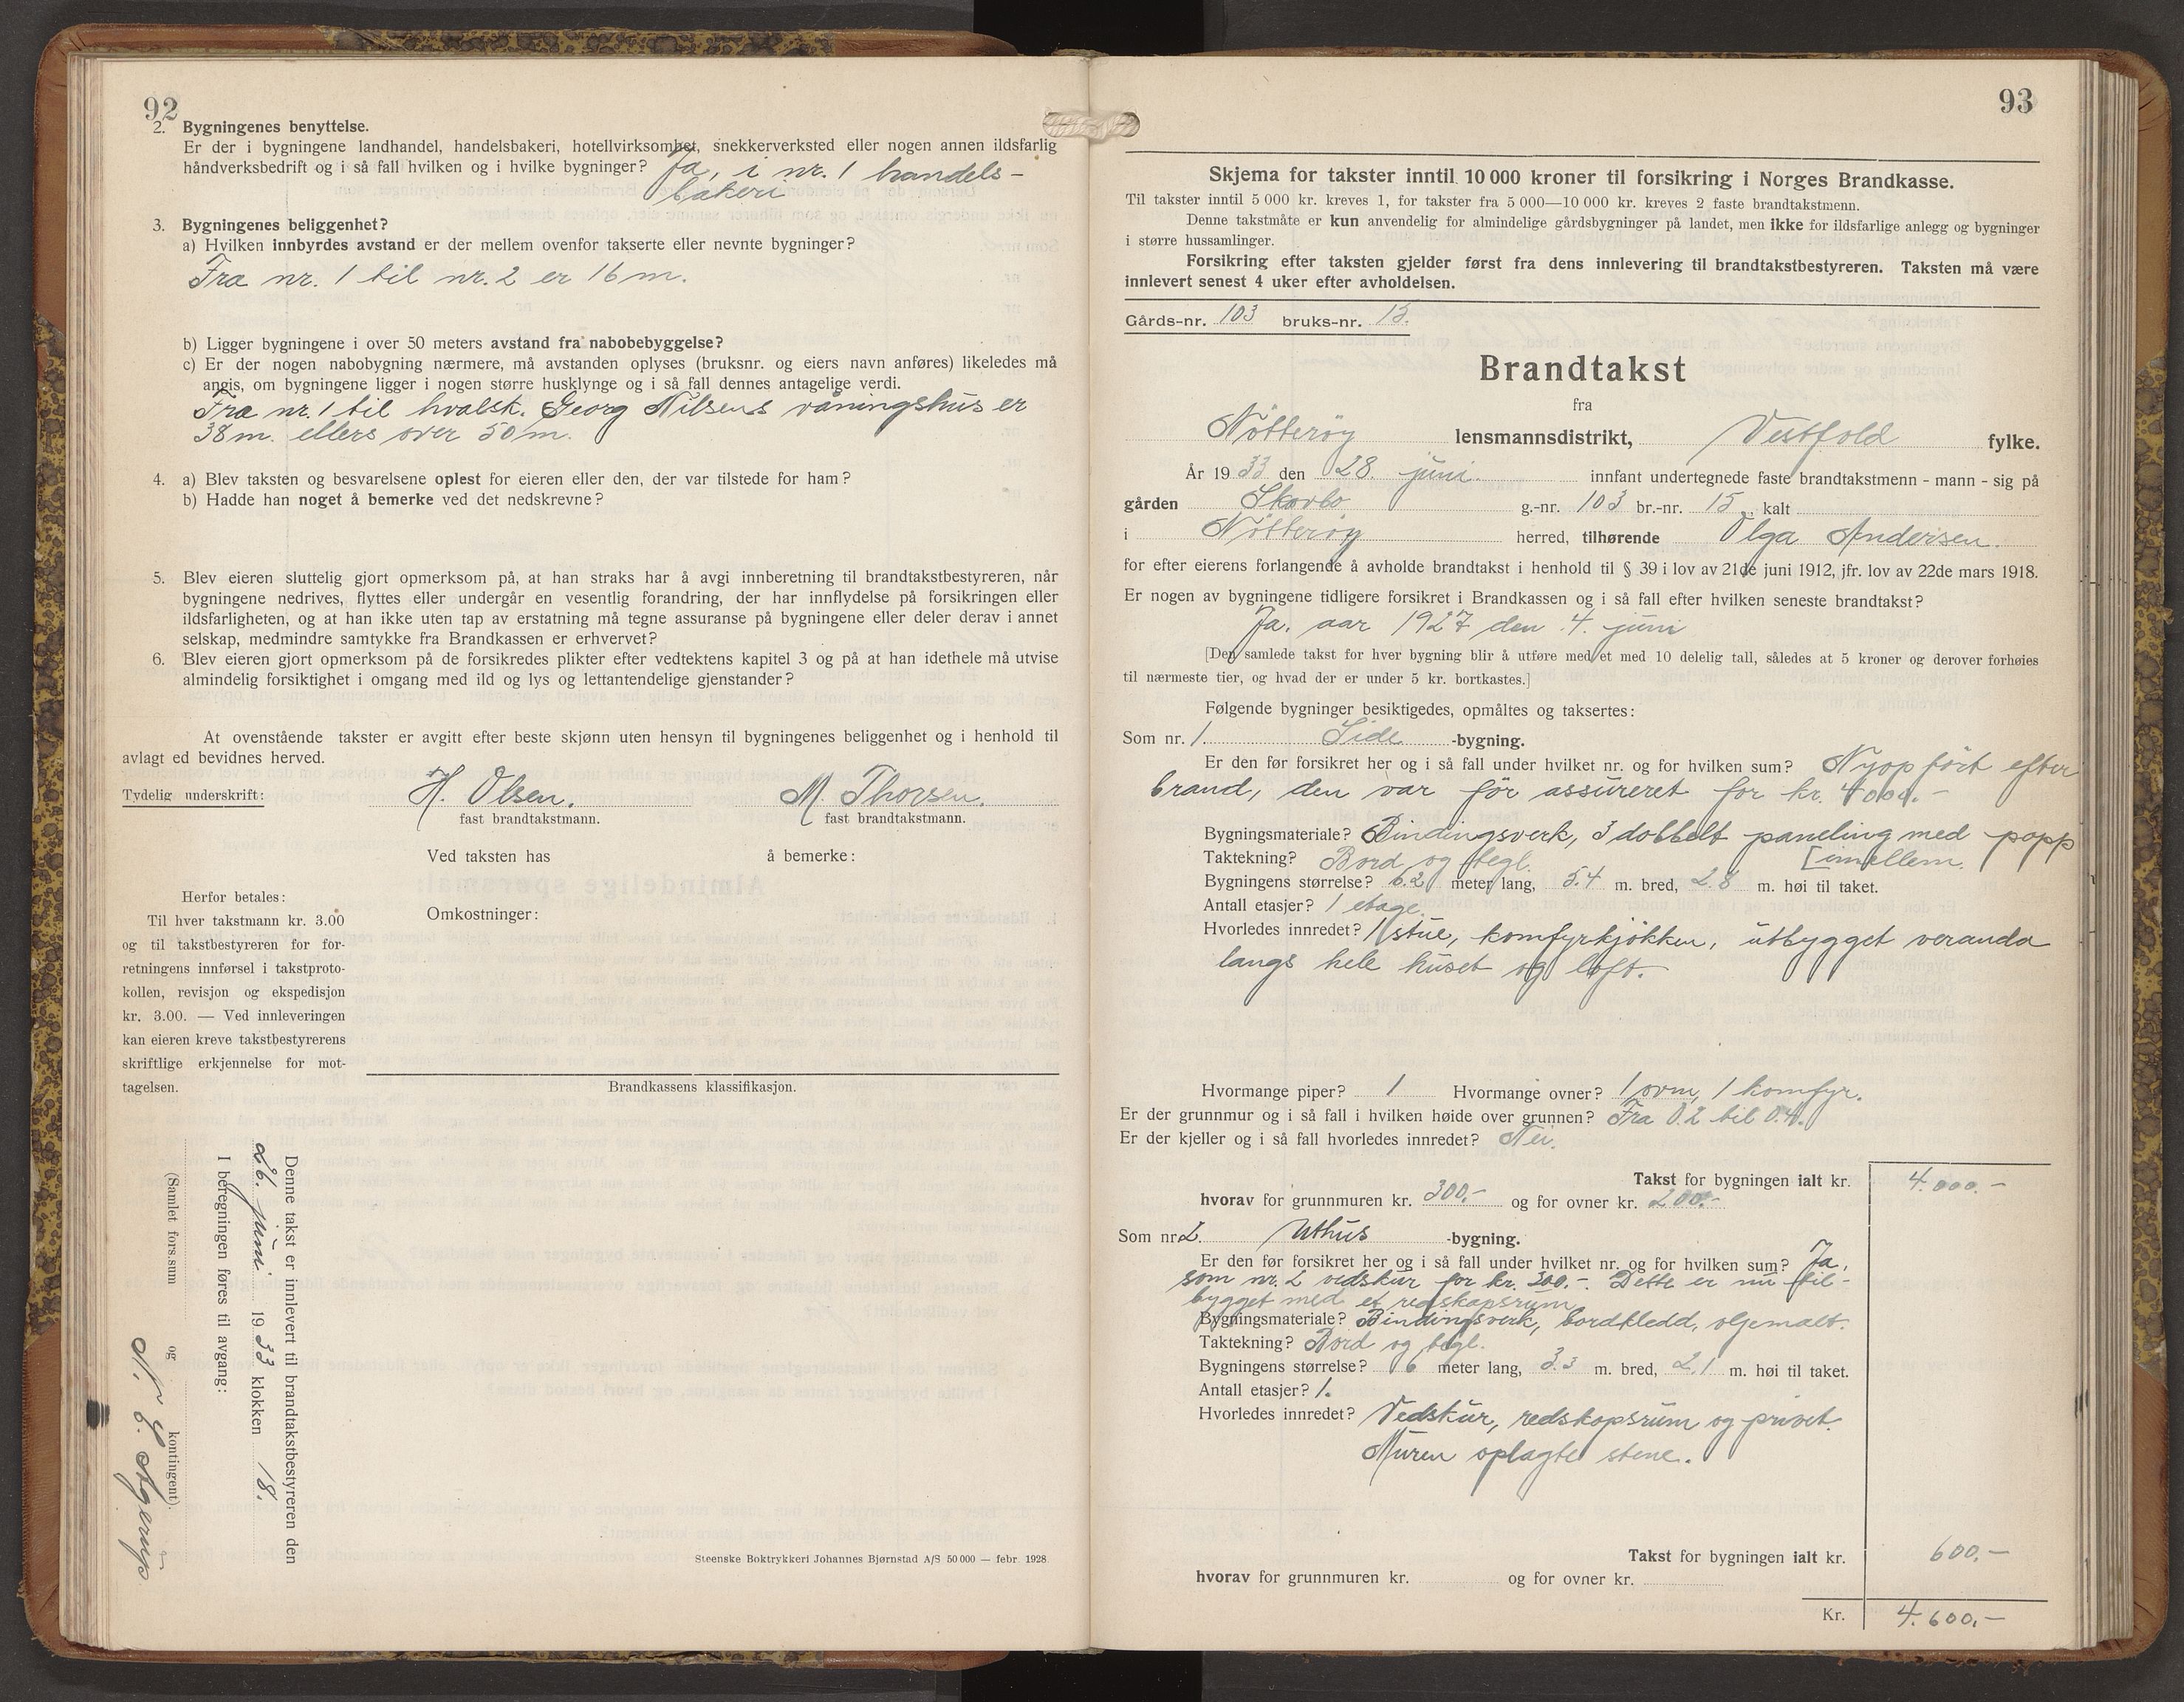 92
2. Bygningenes benyttelse.
Er der i bygningene landhandel, handelsbakeri, hotellvirksomhet, snekkerverksted eller nogen annen ildsfarlig
håndverksbedrift og i så fall hvilken og i hvilke bygninger? Ja, i nr. 1 handels-
bakeri
3. Bygningenes beliggenhet?
a) Hvilken innbyrdes avstand er der mellem ovenfor takserte eller nevnte bygninger?
Fra nr. 1 til nr. 2 er 16 m.
b) Ligger bygningene i over 50 meters avstand fra nabobebyggelse?
c) Er der nogen nabobygning nærmere, må avstanden oplyses (bruksnr. og eiers navn anføres) likeledes må
angis, om bygningene ligger i nogen større husklynge og i så fall dennes antagelige verdi.
Fra nr. 1 til hvalsk. Georg Nilsens våningshus er
38 m. ellers over 50 m.
4. a) Blev taksten og besvarelsene oplest for eieren eller den, der var tilstede for ham?
b) Hadde han noget å bemerke ved det nedskrevne?
5. Blev eieren sluttelig gjort opmerksom på, at han straks har å avgi innberetning til brandtakstbestyreren, når
bygningene nedrives, flyttes eller undergår en vesentlig forandring, der har innflydelse på forsikringen eller
ildsfarligheten, og at han ikke uten tap av erstatning må tegne assuranse på bygningene eller deler derav i annet
selskap, medmindre samtykke fra Brandkassen er erhvervet?
6. Blev eieren gjort opmerksom på de forsikredes plikter efter vedtektens kapitel 3 og på at han idethele må utvise
almindelig forsiktighet i omgang med ild og lys og lettantendelige gjenstander?
At ovenstående takster er avgitt efter beste skjønn uten hensyn til bygningenes beliggenhet og i henhold til
avlagt ed bevidnes herved.
Tydelig underskrift: H. Olsen. M. Thorsen.
fast brandtakstmann. fast brandtakstmann.
Ved taksten has å bemerke:
Omkostninger:
Herfor betales:
Til hver takstmann kr. 3.00
og til takstbestyreren for for-
retningens innførsel i takstproto-
kollen, revisjon og ekspedisjon
kr. 3.00. — Ved innleveringen
kan eieren kreve takstbestyrerens
skriftlige erkjennelse for mot-
tagelsen.
Brandkassens klassifikasjon.
Denne takst er innlevert til brandtakstbestyreren den
26. juni 1933 klokken 18.
I beregningen føres til avgang:
(Samlet fors.sum og kontingent).
Agerup
Steenske Boktrykkeri Johannes Bjørnstad A/S 50 000 — febr. 1928
93
Skjema for takster inntil 10 000 kroner til forsikring i Norges Brandkasse.
Til takster inntil 5 000 kr. kreves 1, for takster fra 5 000—10 000 kr. kreves 2 faste brandtakstmenn.
Denne takstmåte er kun anvendelig for almindelige gårdsbygninger på landet, men ikke for ildsfarlige anlegg og bygninger
i større hussamlinger.
Forsikring efter taksten gjelder først fra dens innlevering til brandtakstbestyreren. Taksten må være
innlevert senest 4 uker efter avholdelsen.
Gårds-nr. 103 bruks-nr. 15.
Brandtakst
fra
Nötteröy lensmannsdistrikt, Vestfold fylke.
År 1933 den 28. juni innfant undertegnede faste brandtakstmenn - mann - sig på
gården Skovbo g.-nr. 103 br.-nr. 15, kalt
i Nötteröy herred, tilhørende Olga Andersen.
for efter eierens forlangende å avholde brandtakst i henhold til § 39 i lov av 21de juni 1912, jfr. lov av 22de mars 1918.
Er nogen av bygningene tidligere forsikret i Brandkassen og i så fall efter hvilken seneste brandtakst?
Ja. aar 1927 den 4. juni
[Den samlede takst for hver bygning blir å utføre med et med 10 delelig tall, således at 5 kroner og derover forhøies
til nærmeste tier, og hvad der er under 5 kr. bortkastes.]
Følgende bygninger besiktigedes, opmåltes og taksertes:
Som nr. 1. Side -bygning.
Er den før forsikret her og i så fall under hvilket nr. og for hvilken sum? Nyop fört efter
brand, den var för assureret for kr. 4000.-
Bygningsmateriale? Bindingsverk, 3 dobbelt paneling med papp
Taktekning? Bord og tegl. [imellem.
Bygningens størrelse? 6.2 meter lang, 5.4 m. bred, 2.8 m. høi til taket.
Antall etasjer? 1 etage.
Hvorledes innredet? 1 stue, komfyrkjökken, utbygget veranda
langs hele huset og loft.
Hvormange piper? 1 Hvormange ovner? 1 ovn, 1 komfyr.
Er der grunnmur og i så fall i hvilken høide over grunnen? Fra 0.2 til 0.4.
Er der kjeller og i så fall hvorledes innredet? Nei.
Takst for bygningen ialt kr. 4.000.-
hvorav for grunnmuren kr. 300.- og for ovner kr. 200.-
Som nr. 2. Uthus -bygning.
Er den før forsikret her og i så fall under hvilket nr. og for hvilken sum? Ja,
som nr. 2 vedskur for kr. 300.-. Dette er nu til-
bygget med et redskapsrum
Bygningsmateriale? Bindingsverk, bordkledd, oljemalt.
Taktekning? Bord og tegl.
Bygningens størrelse? 6 meter lang, 3.3 m. bred, 2.1 m. høi til taket.
Antall etasjer? 1.
Hvorledes innredet? Vedskur, redskapsrum og privet.
Muren oplagte stene.
Takst for bygningen ialt kr. 600.-
hvorav for grunnmuren kr. og for ovner kr.
Kr. 4.600.-